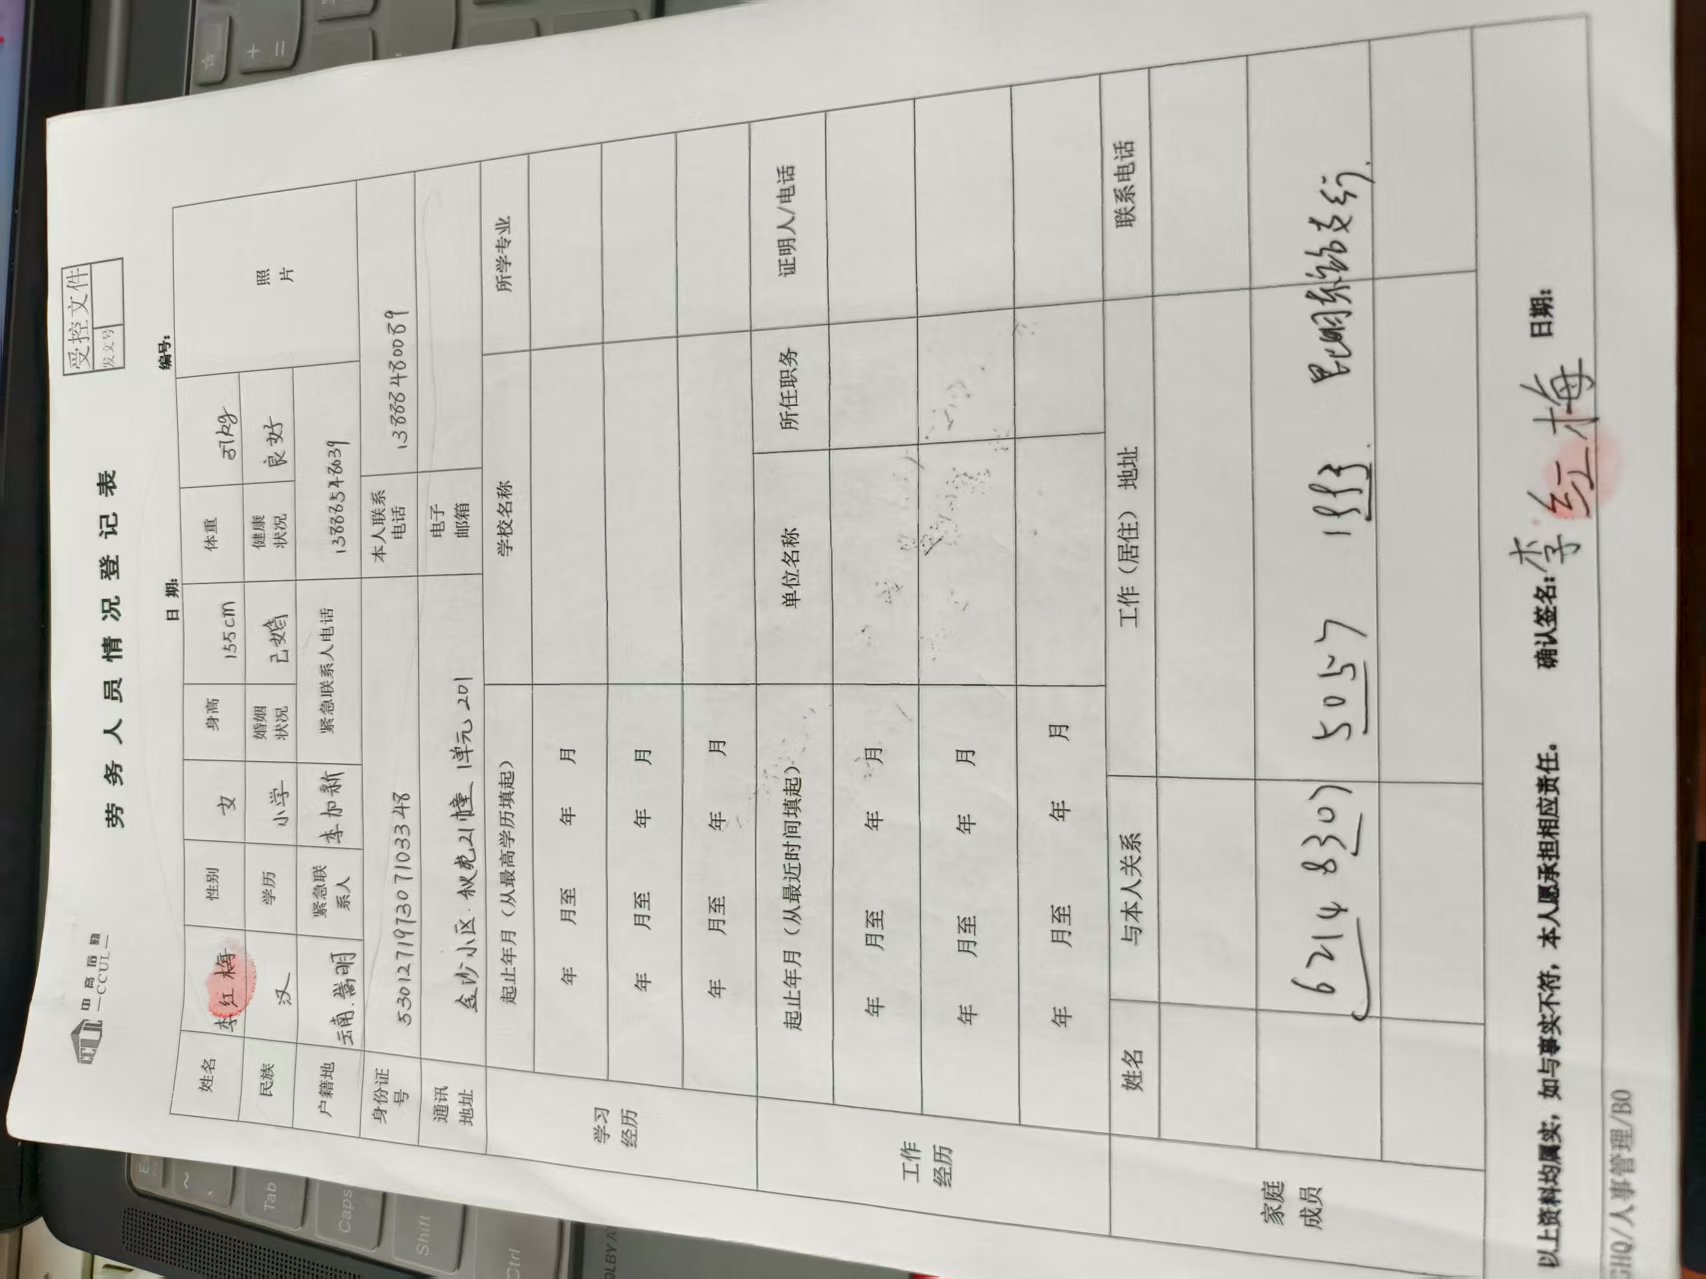 中高后勤
CCUL
受控文件
发文号
劳务人员情况登记表
日期: 编号:
姓名 李红梅 性别 女 身高 155cm 体重 51kg 照片
民族 汉 学历 小学 婚姻状况 已婚 健康状况 良好
户籍地 云南.嵩明 紧急联系人 李加新 紧急联系人电话 13888548639
身份证号 530127197307103348 本人联系电话 13888480089
通讯地址 金沙小区.秋苑21幢1单元201 电子邮箱
学习经历 起止年月（从最高学历填起） 学校名称 所学专业
年 月至 年 月
年 月至 年 月
年 月至 年 月
工作经历 起止年月（从最近时间填起） 单位名称 所任职务 证明人/电话
年 月至 年 月
年 月至 年 月
年 月至 年 月
家庭成员 姓名 与本人关系 工作（居住）地址 联系电话
6214 8307 5057 1993. 昆明东支行.
以上资料均属实，如与事实不符，本人愿承担相应责任。 确认签名: 李红梅 日期:
GHQ/人事管理/B0
Tab
Caps
Shift
Ctrl